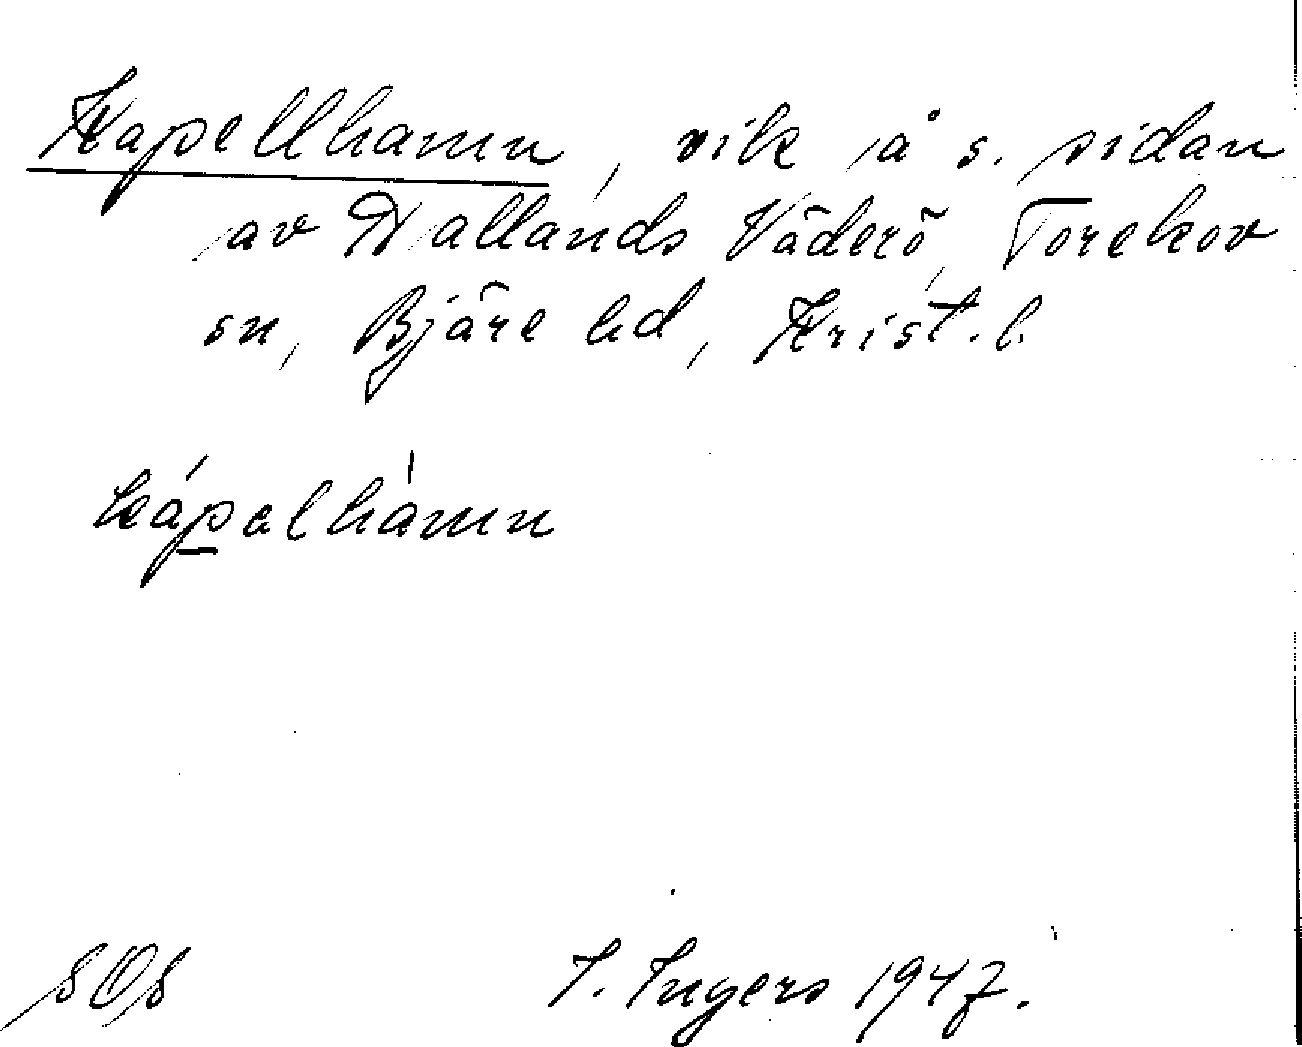 Kapellhamn, vik å s. sidan
av Hallands Väderö, Torekov
sn, Bjäre hd, Krist. l.
kápalhàmn
SOS I. Ingers 1947.